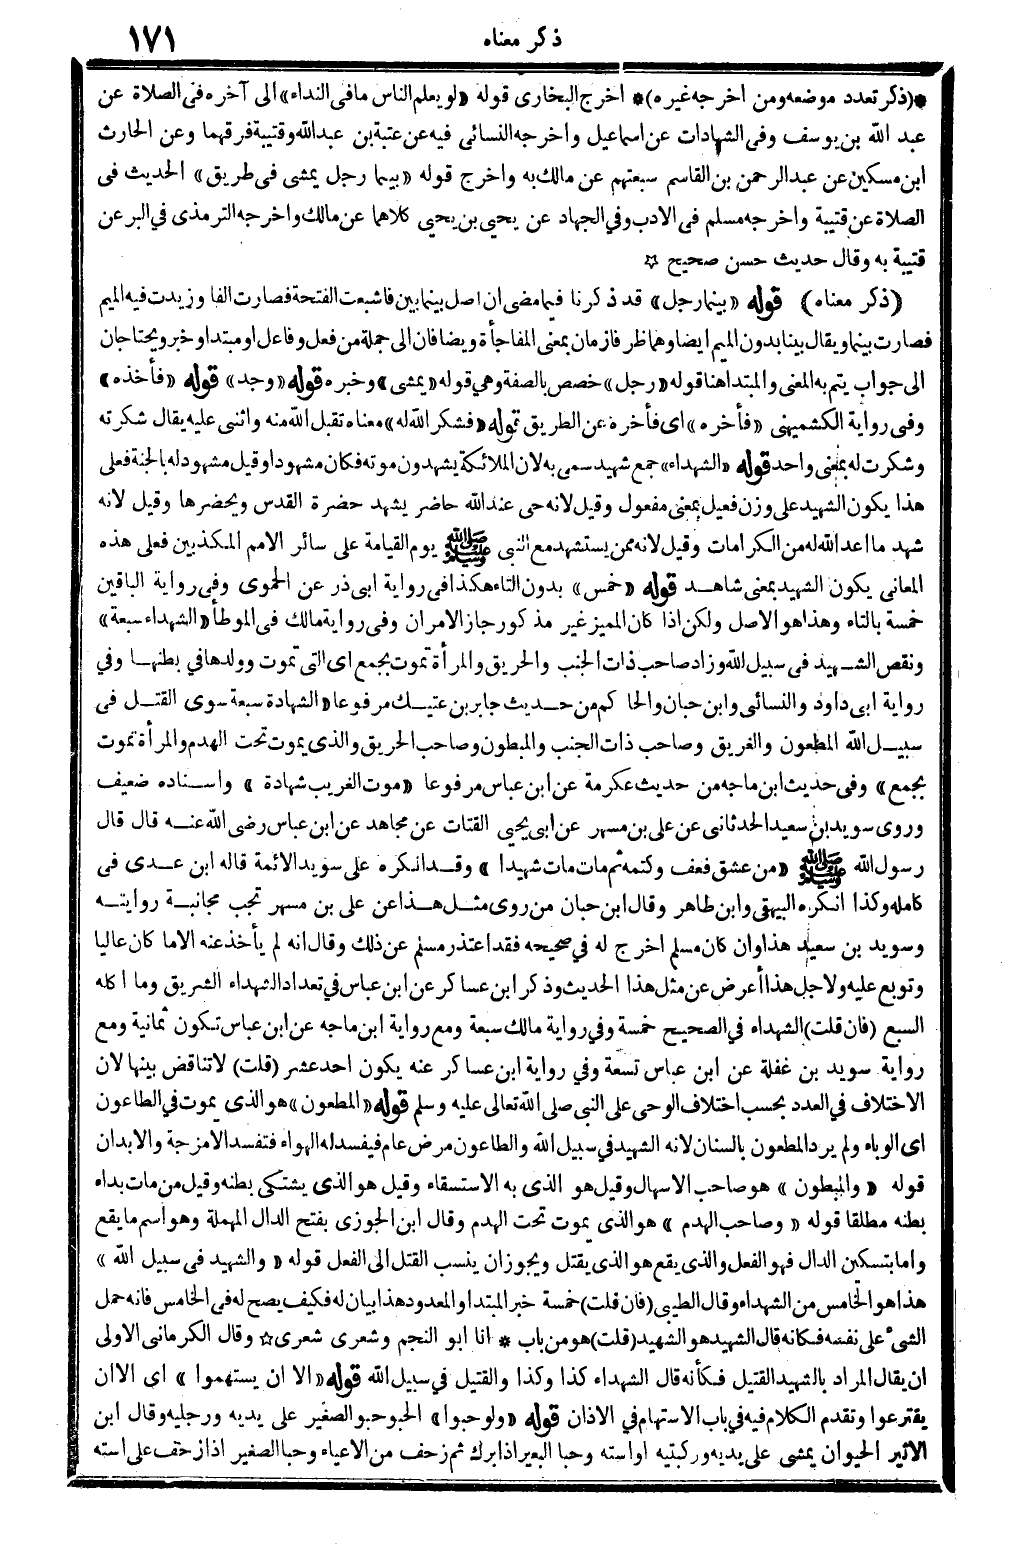 ذكر معناه ١٧١
*(ذكر تعدد موضعه ومن اخرجه غيره)* اخرج البخارى قوله «لو يعلم الناس مافى النداء» الى آخره فى الصلاة عن
عبد الله بن يوسف وفى الشهادات عن اسماعيل واخرجه النسائى فيه عن عتبة بن عبدالله وقتيبة فرقهما وعن الحارث
ابن مسكين عن عبدالرحمن بن القاسم سبعتهم عن مالك به واخرج قوله «بينما رجل يمشى فى طريق» الحديث فى
الصلاة عن قتيبة واخرجه مسلم فى الادب وفي الجهاد عن يحيى بن يحيى كلاهما عن مالك واخرجه الترمذى فى البر عن
قتيبة به وقال حديث حسن صحيح ☆
(ذكر معناه) قوله «بينما رجل» قد ذكرنا فيما مضى ان اصل بينما بين فاشبعت الفتحة فصارت الفا وزيدت فيه الميم
فصارت بينما ويقال بينا بدون الميم ايضا وهما ظرفا زمان بمعنى المفاجأة ويضافان الى جملة من فعل وفاعل او مبتدا وخبر ويحتاجان
الى جواب يتم به المعنى والمبتدا هنا قوله «رجل» خصص بالصفة وهى قوله «يمشى» وخبره قوله «وجد» قوله «فأخذه»
وفى رواية الكشميهنى «فأخره» اى فأخره عن الطريق قوله «فشكر الله له» معناه تقبل الله منه واثنى عليه يقال شكرته
وشكرت له بمعنى واحد قوله «الشهداء» جمع شهيد سمى به لان الملائكة يشهدون موته فكان مشهودا وقيل مشهود له بالجنة فعلى
هذا يكون الشهيد على وزن فعيل بمعنى مفعول وقيل لانه حى عند الله حاضر يشهد حضرة القدس ويحضرها وقيل لانه
شهد ما اعد الله له من الكرامات وقيل لانه ممن يستشهد مع النبى ﷺ يوم القيامة على سائر الامم المكذبين فعلى هذه
المعانى يكون الشهيد بمعنى شاهـد قوله «خمس» بدون التاء هكذا فى رواية ابى ذر عن الحموى وفى رواية الباقين
خمسة بالتاء وهذا هو الاصل ولكن اذا كان المميز غير مذكور جاز الامران وفى رواية مالك فى الموطأ «الشهداء سبعة»
ونقص الشـهيد فى سبيل الله وزاد صاحب ذات الجنب والحريق والمرأة تموت بجمع اى التى تموت وولدها فى بطنهـا وفي
رواية ابى داود والنسائى وابن حبان والحاكم من حـديث جابر بن عتيـك مرفوعا «الشهادة سبعة سوى القتـل فى
سبيـل الله المطعون والغريق وصاحب ذات الجنب والمبطون وصاحب الحريق والذى يموت تحت الهدم والمرأة تموت
بجمع» وفى حديث ابن ماجه من حديث عكرمة عن ابن عباس مرفوعا «موت الغريب شهادة» واسـناده ضعيف
وروى سويد بن سعيد الحدثانى عن على بن مسهر عن ابى يحيى القتات عن مجاهد عن ابن عباس رضى الله عنـه قال قال
رسول الله ﷺ «من عشق فعف وكتمه ثم مات مات شهيدا» وقـد انكره على سويد الائمة قاله ابن عـدى فى
كامله وكذا انكره البيهقى وابن طاهر وقال ابن حبان من روى مثـل هـذا عن على بن مسهر تجب مجانبـة روايتـه
وسويد بن سعيد هذا وان كان مسلم اخرج له فى صحيحه فقد اعتذر مسلم عن ذلك وقال انه لم يأخذ عنه الا ما كان عاليا
وتوبع عليه ولاجل هذا أعرض عن مثل هذا الحديث وذكر ابن عساكر عن ابن عباس في تعداد الشهداء الشريق وما اكله
السبع (فان قلت) الشهداء في الصحيح خمسة وفي رواية مالك سبعة ومع رواية ابن ماجه عن ابن عباس تكون ثمانية ومع
رواية سويد بن غفلة عن ابن عباس تسعة وفي رواية ابن عساكر عنه يكون احد عشر (قلت) لا تناقض بينها لان
الاختلاف في العدد بحسب اختلاف الوحى على النبى صلى الله تعالى عليه وسلم قوله «المطعون» هو الذى يموت في الطاعون
اى الوباء ولم يرد المطعون بالسنان لانه الشهيد في سبيل الله والطاعون مرض عام فيفسد له الهواء فتفسد الامزجة والابدان
قوله «والمبطون» هو صاحب الاسهال وقيل هو الذى به الاستسقاء وقيل هو الذى يشتكى بطنه وقيل من مات بداء
بطنه مطلقا قوله «وصاحب الهدم» هو الذى يموت تحت الهدم وقال ابن الجوزى بفتح الدال المهملة وهو اسم ما يقع
واما بتسكين الدال فهو الفعل والذى يقع هو الذى يقتل ويجوز ان ينسب القتل الى الفعل قوله «والشهيد فى سبيل الله»
هذا هو الخامس من الشهداء وقال الطيبى (فان قلت) خمسة خبر المبتدا والمعدود هذا بيان له فكيف يصح له فى الخامس فانه حمل
الشئ على نفسه فكانه قال الشهيد هو الشهيد (قلت) هو من باب * انا ابو النجم وشعرى شعرى ☆ وقال الكرمانى الاولى
ان يقال المراد بالشهيد القتيل فكأنه قال الشهداء كذا وكذا والقتيل في سبيل الله قوله «الا ان يستهموا» اى الا ان
يقترعوا وتقدم الكلام فيه في باب الاستهام في الاذان قوله «ولو حبوا» الحبو حبو الصغير على يديه ورجليه وقال ابن
الاثير الحيوان يمشى على يديه وركبتيه او استه وحبا البعير اذا برك ثم زحف من الاعياء وحبا الصغير اذا زحف على استه